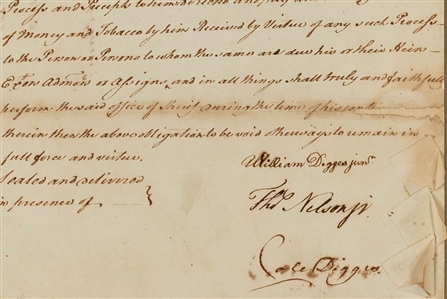 Process and Precepts to him directed and pay and
of Money and Tobacco by him Received by Virtue of any such Process
to the Person or Persons to whom the same are due his or their Heirs
Exors Admors or Assigns, and in all things shall truly and faithfull
perform the said office of Sherif during the time of his conti
therein then the above Obligation to be void otherways to remain in
full force and virtue.
Sealed and delivered
in presence of
William Digges junr
Thos Nelson jr.
Cole Digges.